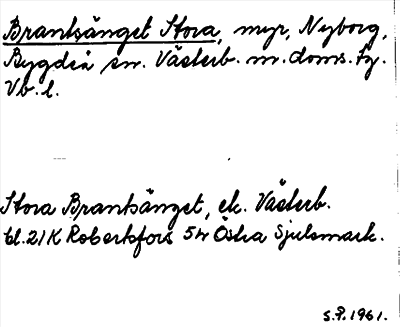 Brantsänget Stora, myr, Nyborg,
Bygdeå sn. Västerb. m. doms. tg.
Vb. l.
Stora Brantsänget, ek. Västerb.
bl. 21 K Robertsfors 5 v Östra Sjulsmark.
S.P. 1961.